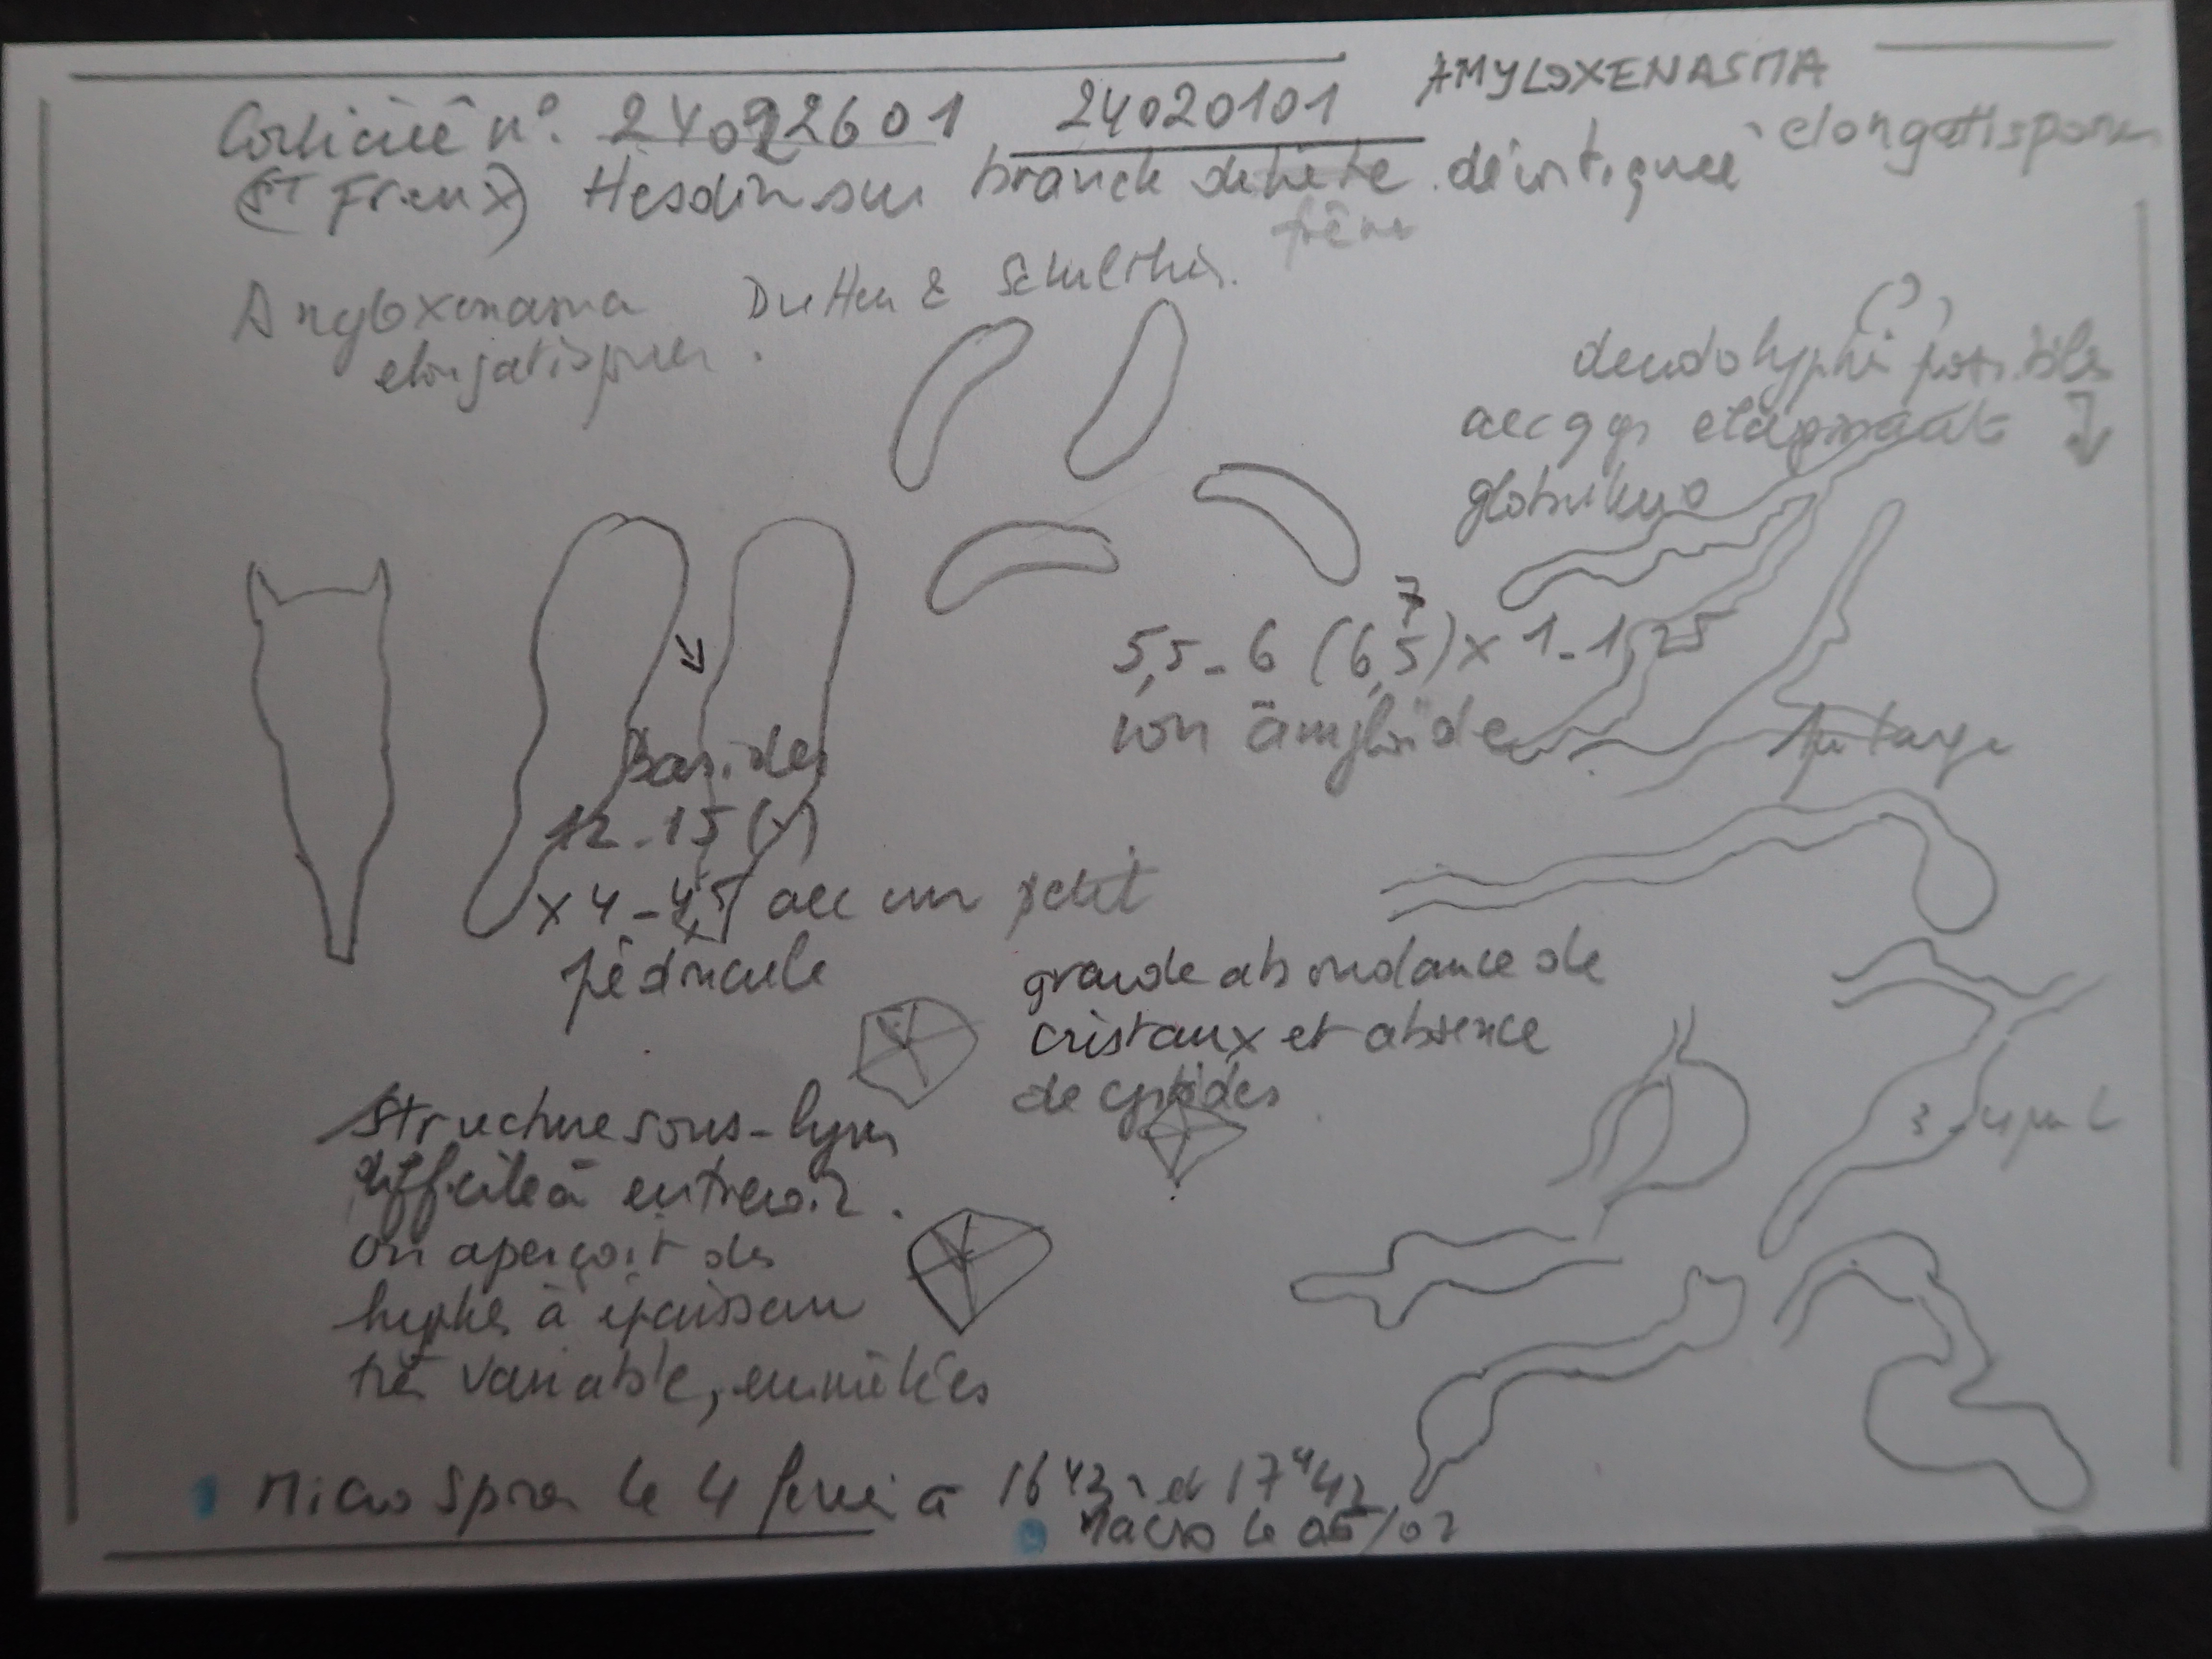 Corticiée n°. 24092601 24020101 AMYLOXENASMA
elongatispora
(ST Frieux) Hesdin sur branche de hêtre décortiquée
frêne
Amyloxenasma Duhem & Schultheis.
elongatispora.
(?)
dendohyphi possibles
avec qqs
5,5 - 6 (6,5) x 1 - 1,25
7
non amyloïde
Basides
12 - 15 (-)
x 4 - 4,5 avec un petit
pédincule
grande abondance de
cristaux et absence
de cystides
3-4 µm L
Structure sous-hym
difficile à entrevoir.
on aperçoit des
hyphes à épaisseur
très variable, emmêlées
Micro Spores le 4 à 16 43 et 17 42
Macro le 05/02